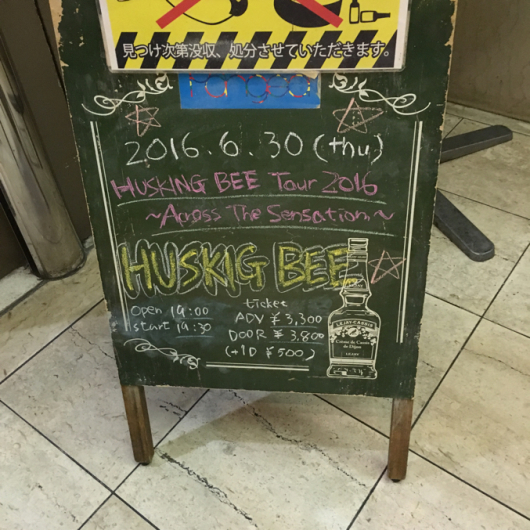 見つけ次第没収、処分させていただきます。
2016.6.30(thu)
HUSKING BEE Tour 2016
~Across The Sensation~
HUSKIG BEE
open 19:00
start 19:30
ticket
ADV ¥3,300
DOOR ¥3,800
(+1D ¥500)
LEJAY-CASSIS
Crème de Cassis
de Dijon
LEJAY